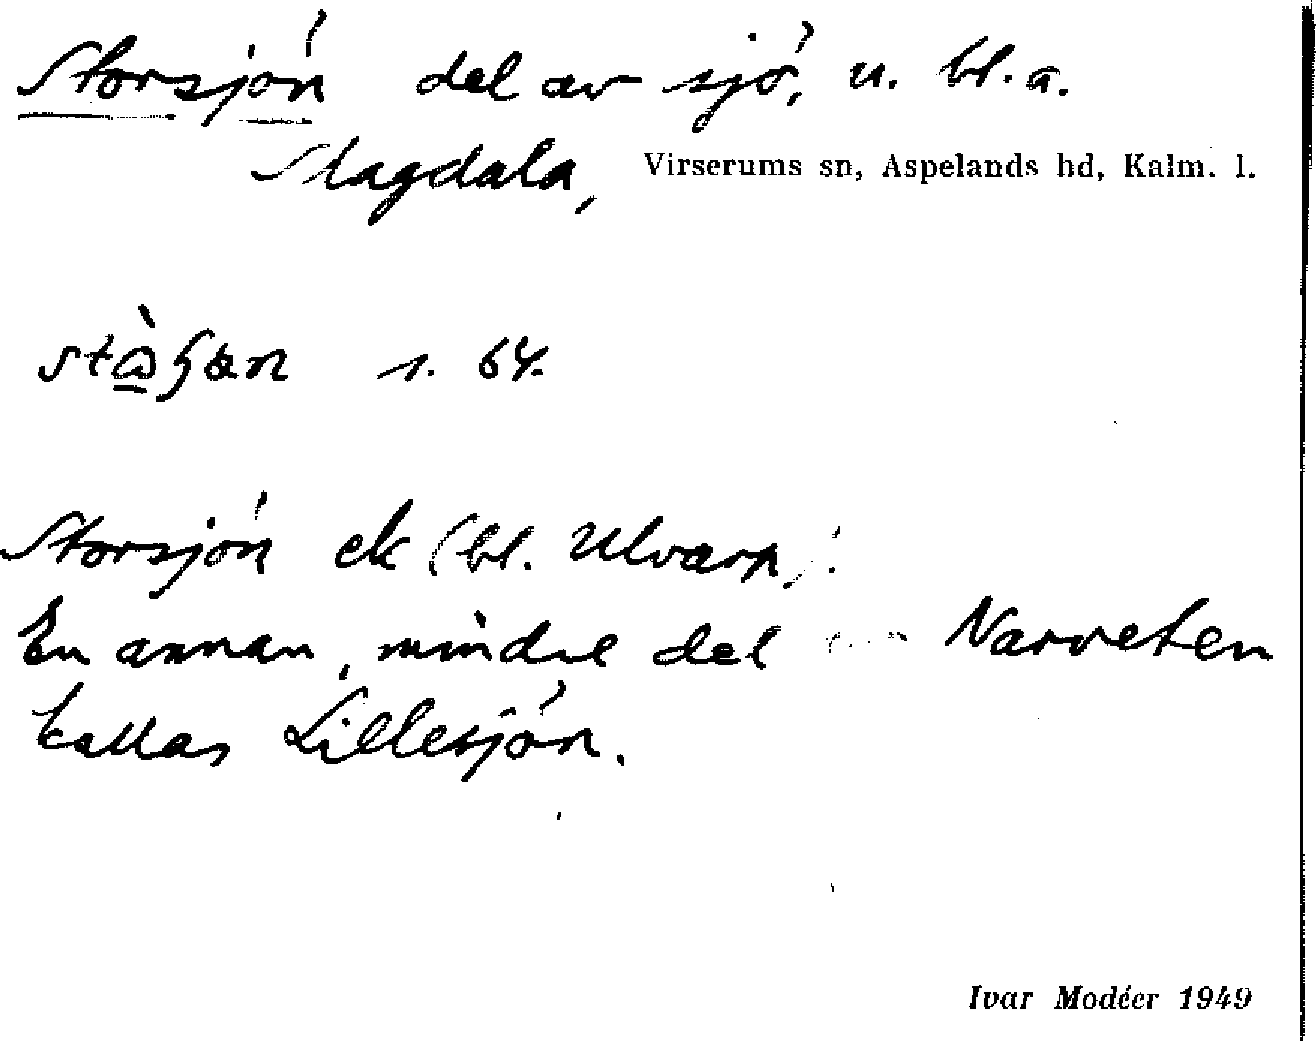 Storsjön del av sjö, u. bl.a.
Slagdala, Virserums sn, Aspelands hd, Kalm. l.
s. 64.
Storsjön ek (bl. Ulvarp):
En annan, mindre del Narveten
kallas Lillesjön.
Ivar Modéer 1949